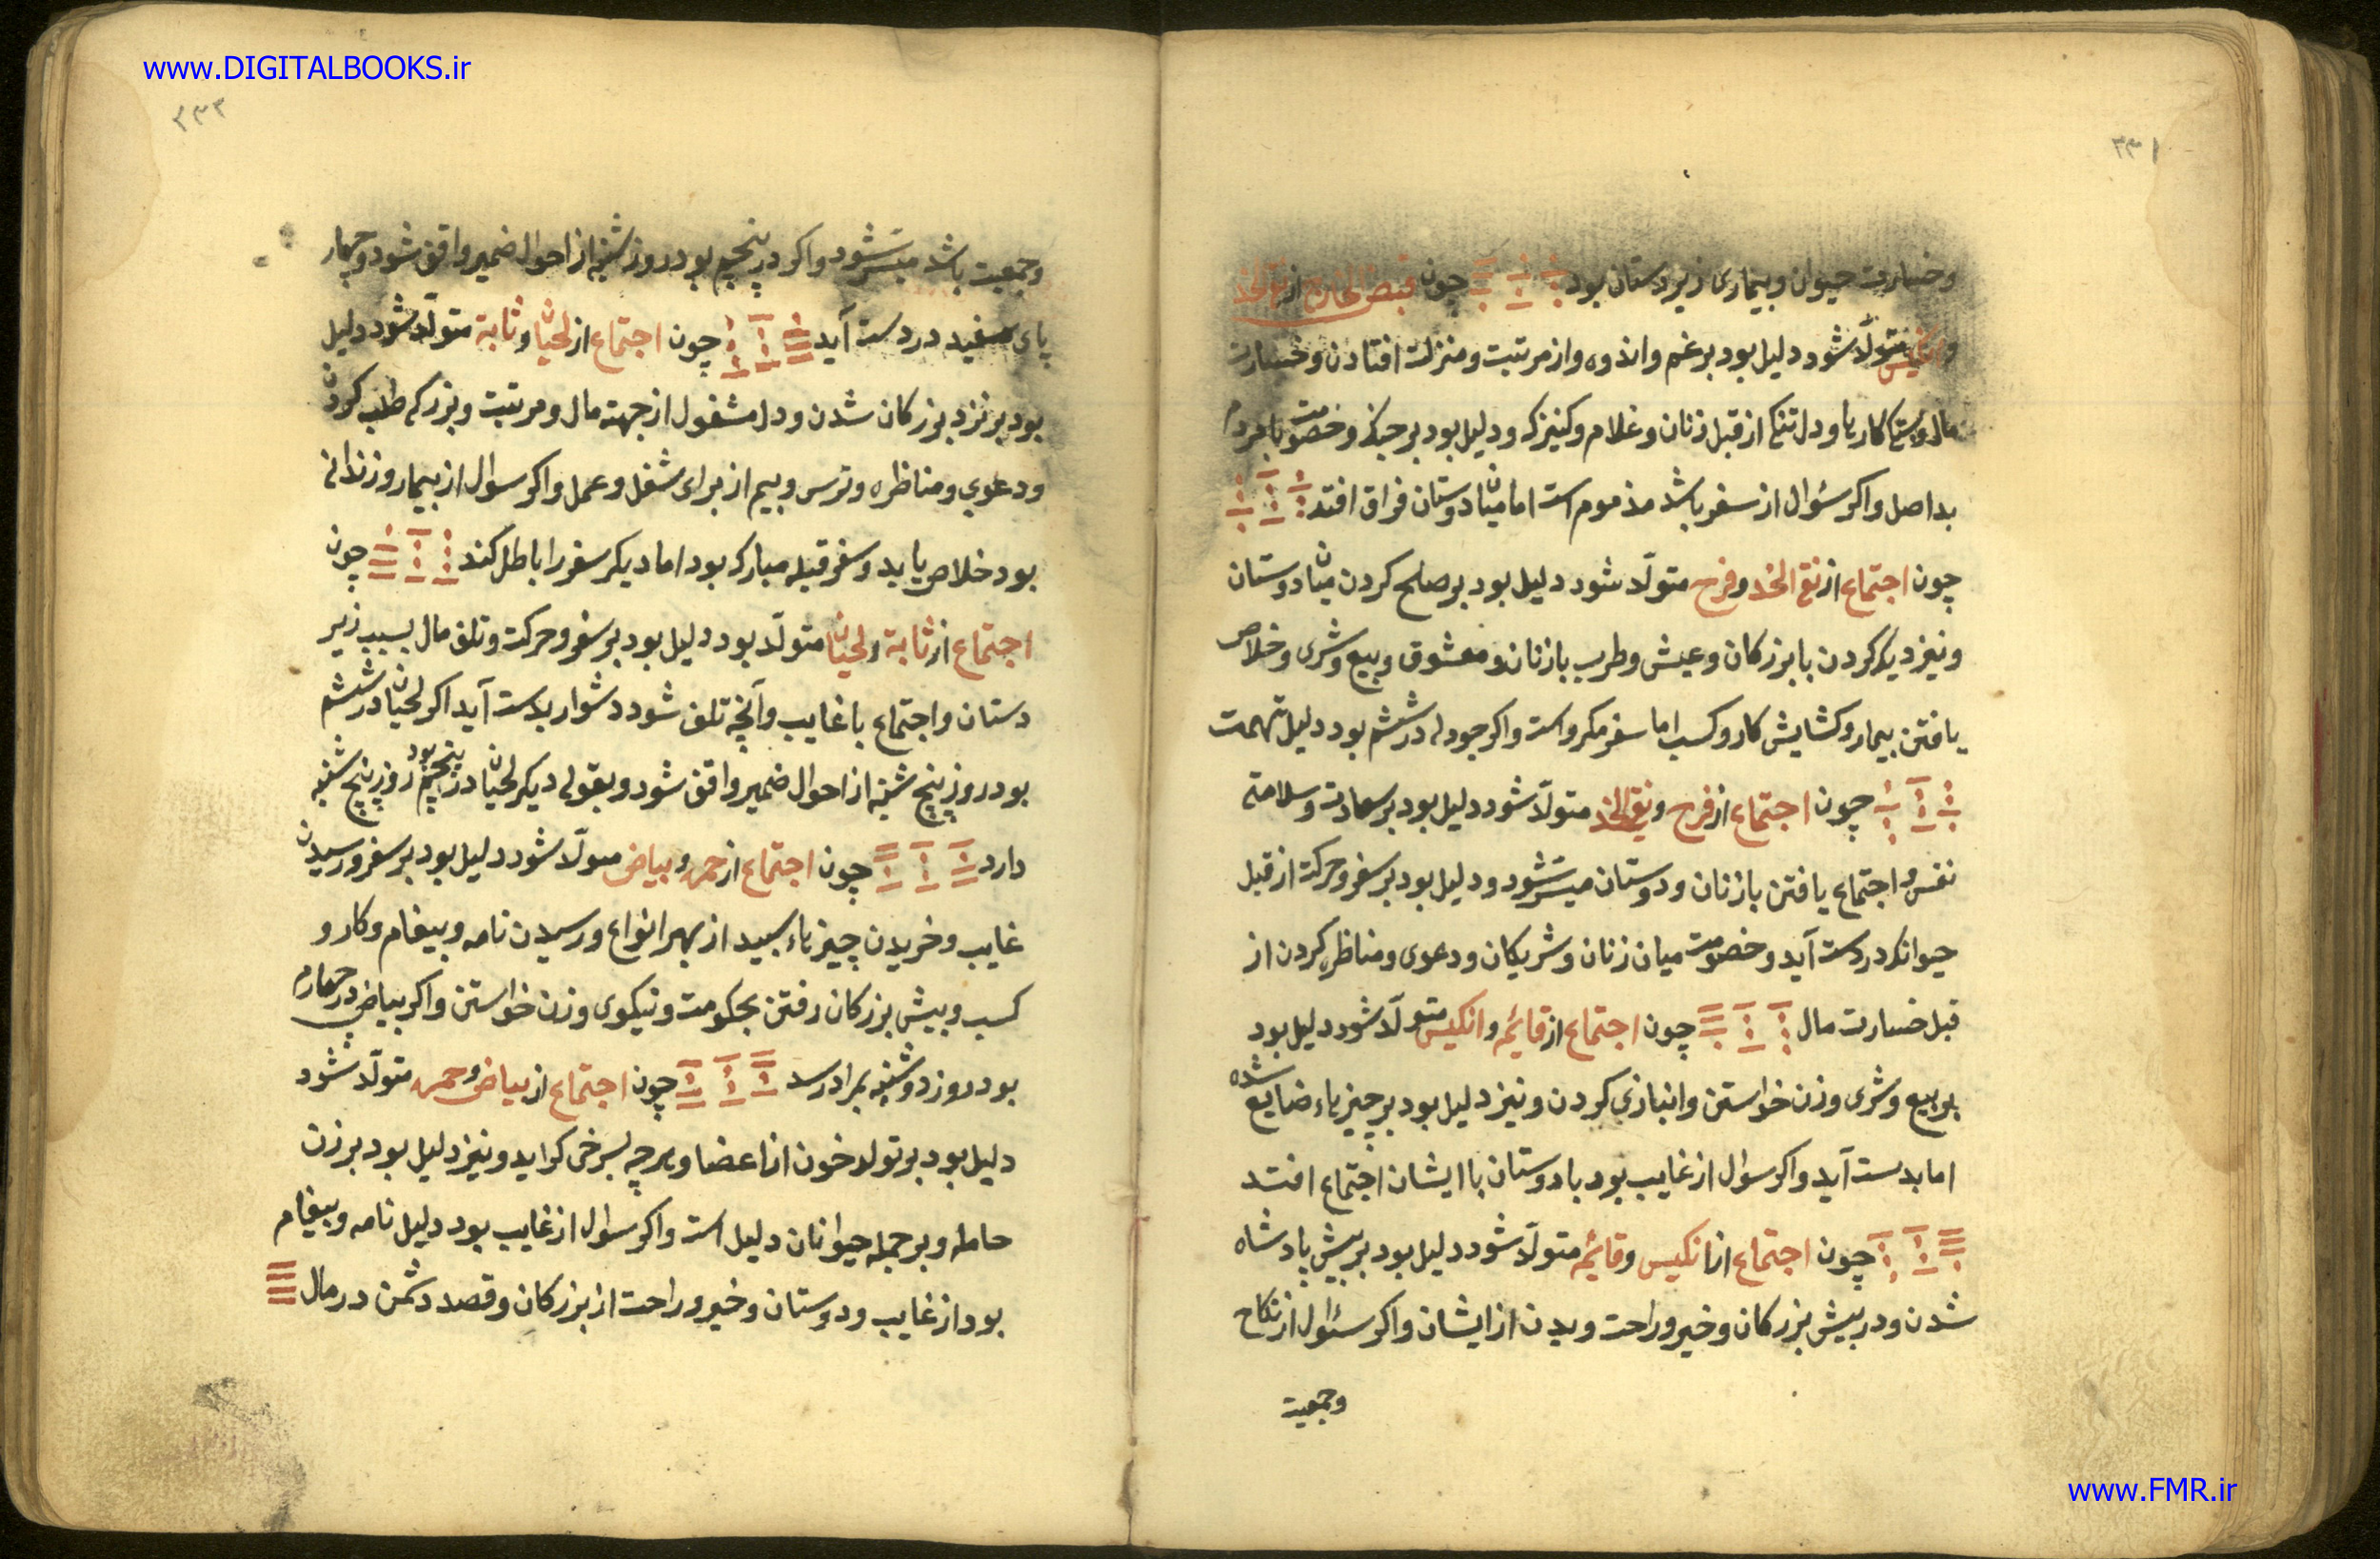 www.DIGITALBOOKS.ir
۳۳۱
وخسارت حیوان وبیماری زیردستان بود چون قبض الخارج از نقی الخد
وانکیس متولّد شود دلیل بود برغم واندوه واز مرتبت ومنزلت افتادن وخسارت
مال کارها ودلتنکی از قبل زنان وغلام وکنیزک ودلیل بود برجنک وخصومت بامردم
بداصل واکر سئوال از سفر باشد مذموم است اما میان دوستان فراق افتد
چون اجتماع از نقی الخد وفرح متولّد شود دلیل بود برصلح کردن میان دوستان
ونیز دیکر کردن با بزرکان وعیش وطرب بازنان ومعشوق وبیع وشری وخلاص
یافتن بیمار وکشایش کار وکسب اما سفر مکروه است واکر جودله در ششم بود دلیل تهمت
چون اجتماع از فرح ونقی الخد متولّد شود دلیل بود برسعادت وسلامتی
نفس واجتماع یافتن بازنان ودوستان میسّر شود ودلیل بود برسفر وحرکت از قبل
حیوانکه در دست آید وخصومت میان زنان وشریکان ودعوی ومناظره کردن از
قبل خسارت مال چون اجتماع از قایمه وانکیس متولّد شود دلیل بود
بر بیع وشری وزن خواستن وانبازی کردن ونیز دلیل بود برچیزهاء ضایع شده
اما بدست آید واکر سوال از غایب بود بادوستان با ایشان اجتماع افتد
چون اجتماع از انکیس وقایمه متولّد شود دلیل بود بر پیش پادشاه
شدن ودر پیش بزرکان وخیر وراحت ودیدن از ایشان واکر سئوال از نکاح
وجمعیت
۳۳۲
وجمعیت باشد میسّر شود واکر در پنجم بود روز شنبه از احوال ضمیر واقف شود وچهار
پای سفید در دست آید چون اجتماع از لحیان وثابة متولّد شود دلیل
بود بر نزد بزرکان شدن ودل مشغول از جهت مال ومرتبت وبزرکی طلب کردن
ودعوی ومناظره وترس وبیم از برای شغل وعمل واکر سوال از بیمار وزندانی
بود خلاص یابد وسفر قبله مبارک بود اما دیکر سفر را باطل کند چون
اجتماع از ثابة ولحیان متولّد بود دلیل بود برسفر وحرکت وتلف مال بسبب زیر
دستان واجتماع با غایب وآنچه تلف شود دشوار بدست آید اکر لحیان در ششم
بود روز پنج شنبه از احوال ضمیر واقف شود وبقولی دیکر لحیان در پنجم بود روز پنج شنبه
دارد چون اجتماع از حمره وبیاض متولّد شود دلیل بود برسفر ورسیدن
غایب وخریدن چیزهاء سپید از بهر انواع ورسیدن نامه وپیغام وکار و
کسب وپیش بزرکان رفتن بحکومت ونیکوی وزن خواستن واکر بیاض در چهارم
بود روز دوشنبه بمراد رسد چون اجتماع از بیاض وحمره متولّد شود
دلیل بود بر تولد خون از اعضا وهرچه بسرخی کراید ونیز دلیل بود بر زن
حامله وبر جمله حیوانان دلیل است واکر سوال از غایب بود دلیل نامه وپیغام
بود از غایب ودوستان وخیر وراحت از بزرکان وقصد دشمن در مال
www.FMR.ir